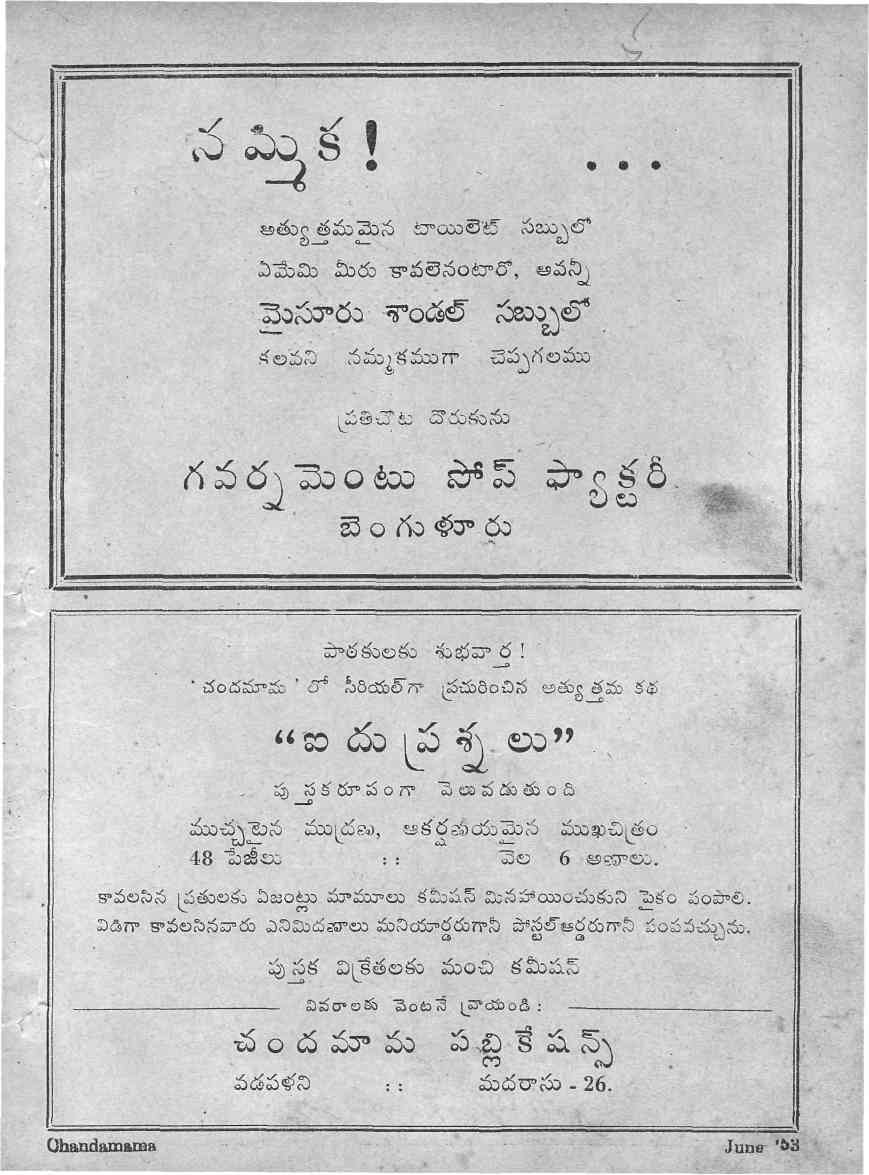 నమ్మిక! ...
అత్యుత్తమమైన టాయిలెట్ సబ్బులో
ఏమేమి మీరు కావలెనంటారో, అవన్నీ
మైసూరు శాండల్ సబ్బులో
కలవని నమ్మకముగా చెప్పగలము
ప్రతిచోట దొరుకును
గవర్నమెంటు సోప్ ఫ్యాక్టరీ
బెంగుళూరు
పాఠకులకు శుభవార్త!
'చందమామ' లో సీరియల్‌గా ప్రచురించిన అత్యుత్తమ కథ
“ఐదు ప్రశ్నలు”
పుస్తకరూపంగా వెలువడుతుంది
ముచ్చటైన ముద్రణ, ఆకర్షణీయమైన ముఖచిత్రం
48 పేజీలు :: వెల 6 అణాలు.
కావలసిన ప్రతులకు ఏజంట్లు మామూలు కమీషన్ మినహాయించుకుని పైకం పంపాలి.
విడిగా కావలసినవారు ఎనిమిదణాలు మనియార్డరుగానీ పోస్టల్ఆర్డరుగానీ పంపవచ్చును.
పుస్తక విక్రేతలకు మంచి కమీషన్
వివరాలకు వెంటనే వ్రాయండి:
చందమామ పబ్లికేషన్స్
వడపళని :: మదరాసు - 26.
Chandamama June '53